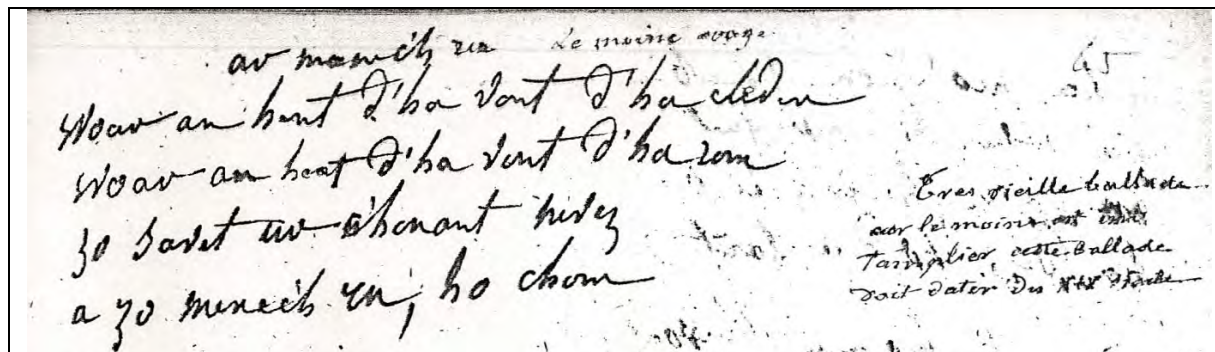 ar manech ru Le moine rouge 45
Woar an hent d'ha vont d'ha cleden
Woar an hent d'ha vont d'ha rom
zo savet ur c'honant nevez
a zo menech ru, ho chom
Tres vieille ballade
car le moine est un
Tamplier cette ballade
doit dater du siecle